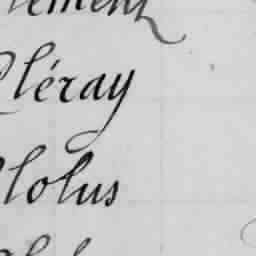 Clément
Cléray
Clolus